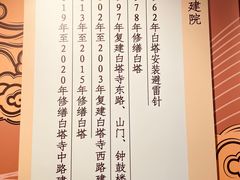 建院
62年白塔安装避雷针
78年修缮白塔
97年复建白塔寺东路、山门、钟鼓楼
02年至2003年复建白塔寺西路建
13年至2015年修缮白塔
19年至2020年修缮白塔寺中路建